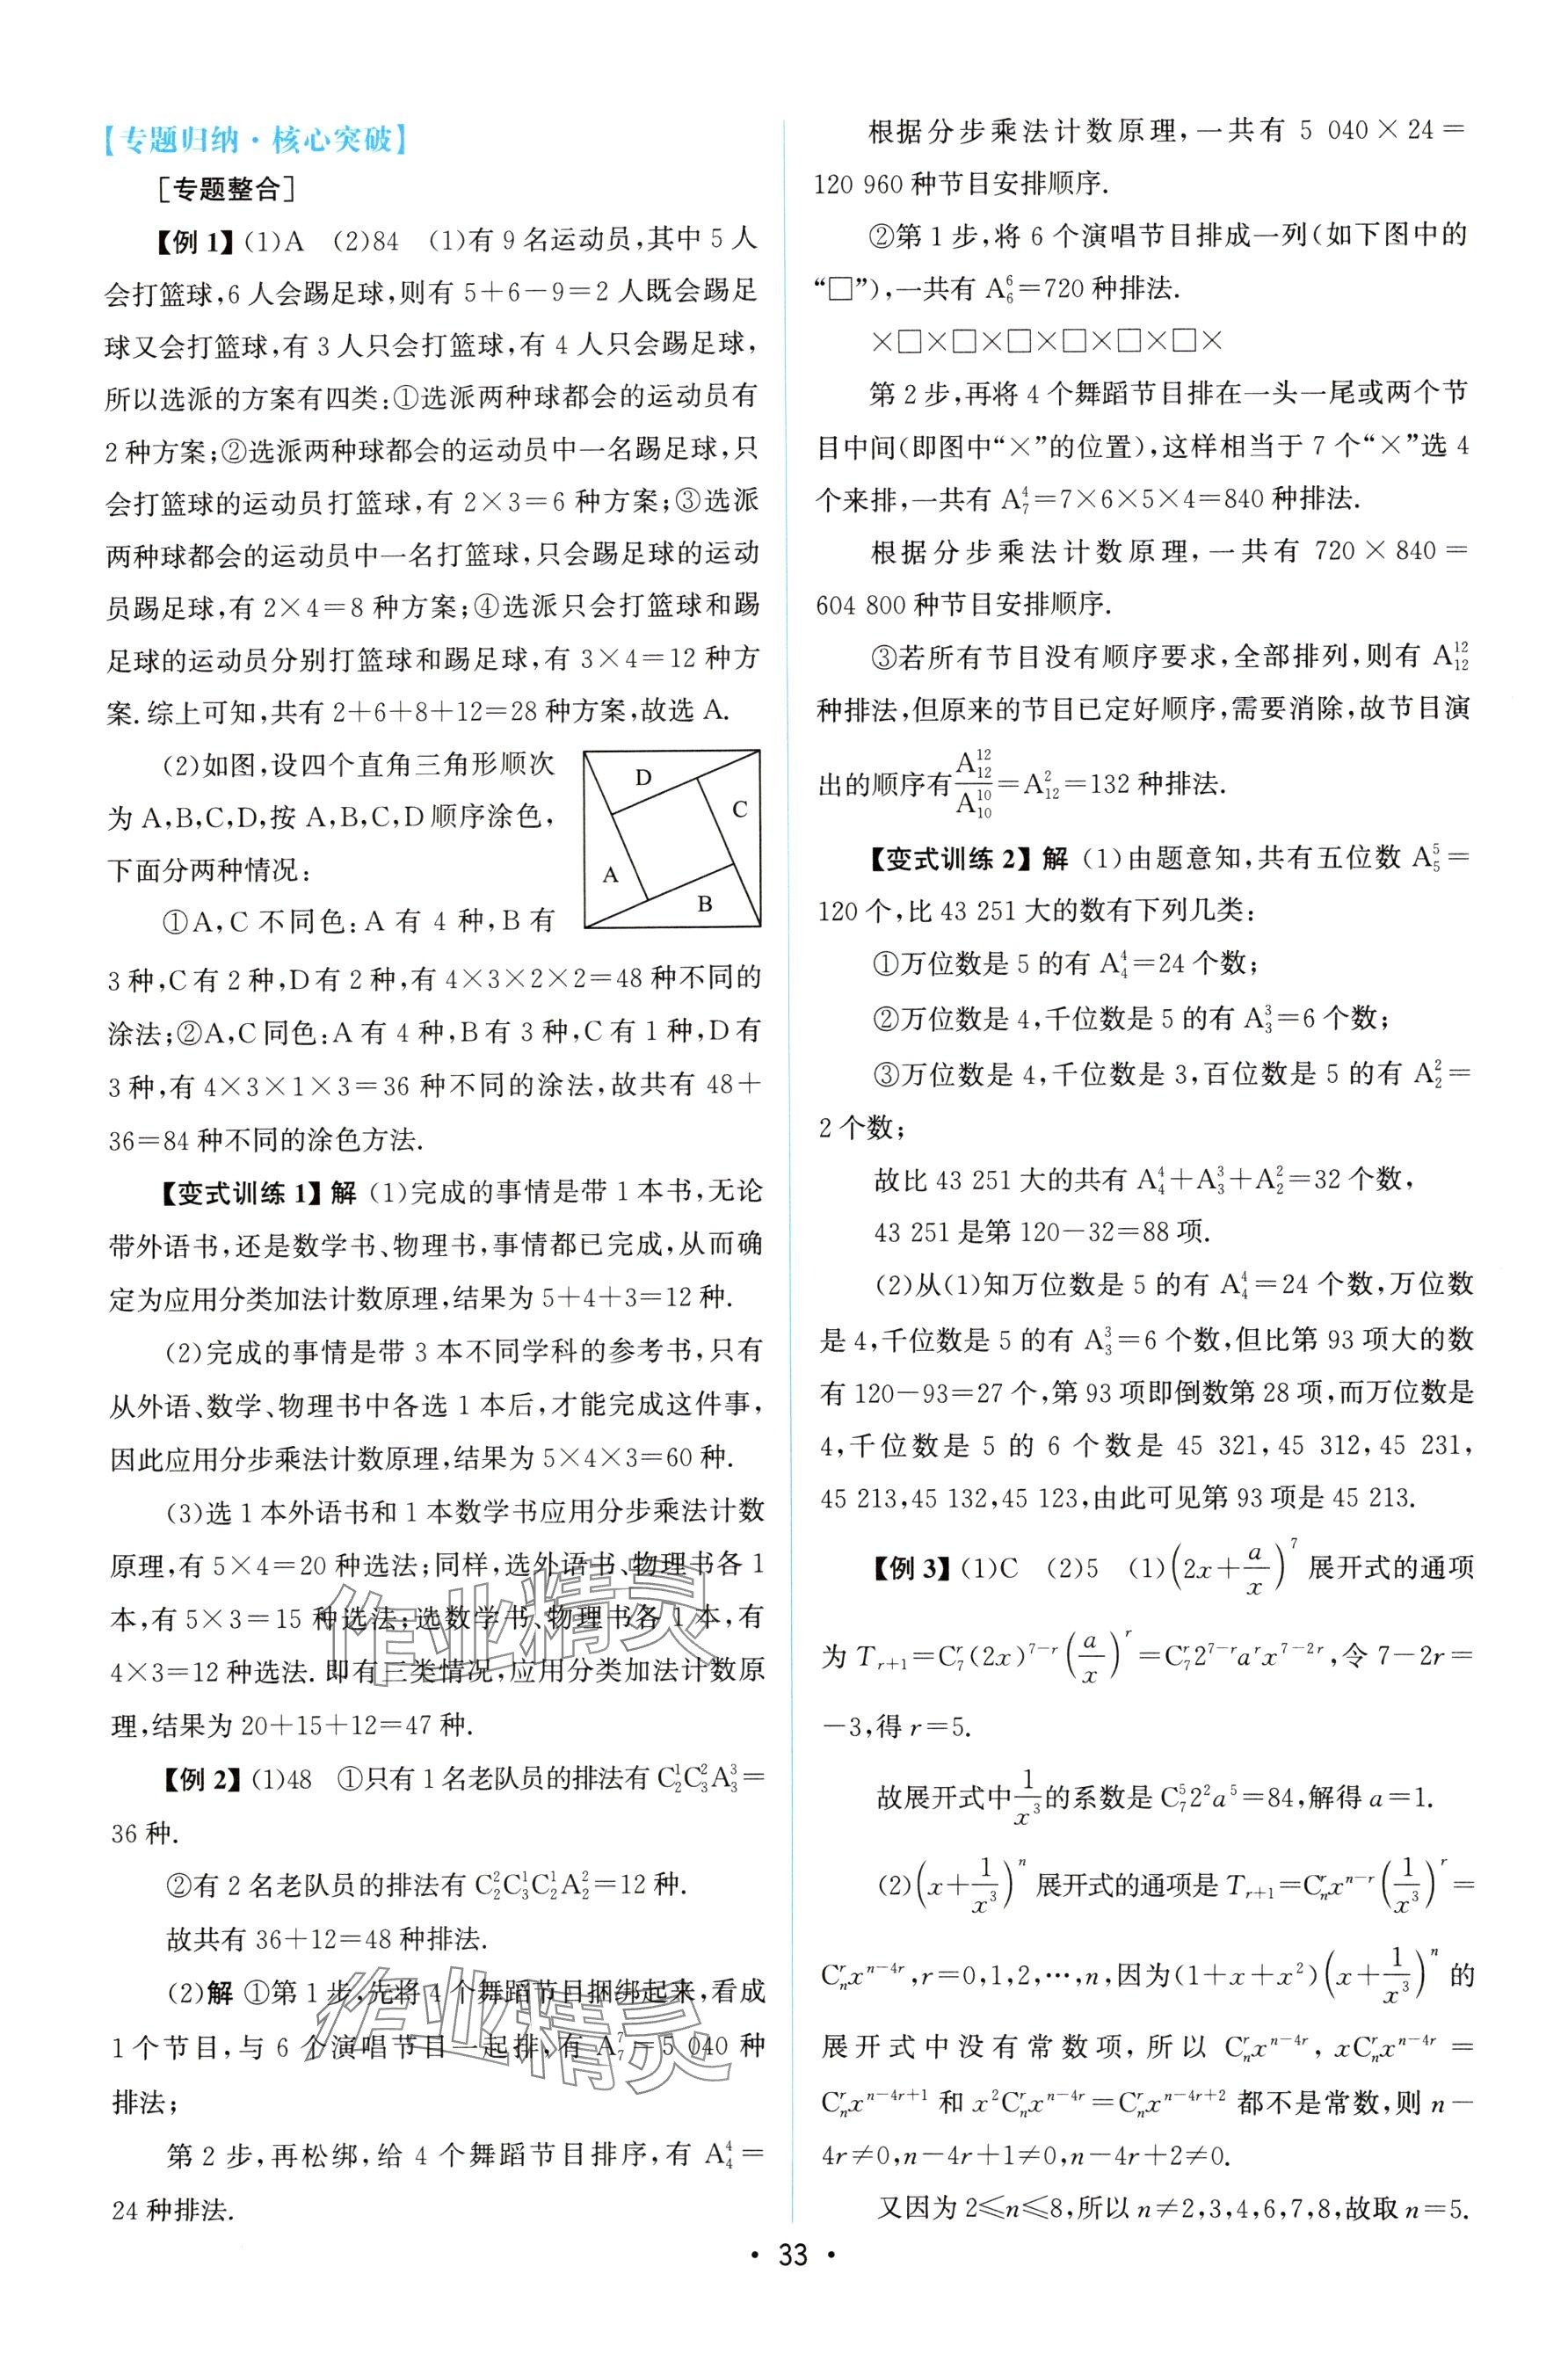 【专题归纳·核心突破】
[专题整合]
【例1】(1)A (2)84 (1)有9名运动员,其中5人
会打篮球,6人会踢足球,则有5+6-9=2人既会踢足
球又会打篮球,有3人只会打篮球,有4人只会踢足球,
所以选派的方案有四类:①选派两种球都会的运动员有
2种方案;②选派两种球都会的运动员中一名踢足球,只
会打篮球的运动员打篮球,有2×3=6种方案;③选派
两种球都会的运动员中一名打篮球,只会踢足球的运动
员踢足球,有2×4=8种方案;④选派只会打篮球和踢
足球的运动员分别打篮球和踢足球,有3×4=12种方
案.综上可知,共有2+6+8+12=28种方案,故选A.
(2)如图,设四个直角三角形顺次
为A,B,C,D,按A,B,C,D顺序涂色,
下面分两种情况:
D
C
A
B
①A,C不同色:A有4种,B有
3种,C有2种,D有2种,有4×3×2×2=48种不同的
涂法;②A,C同色:A有4种,B有3种,C有1种,D有
3种,有4×3×1×3=36种不同的涂法,故共有48+
36=84种不同的涂色方法.
【变式训练1】解 (1)完成的事情是带1本书,无论
带外语书,还是数学书、物理书,事情都已完成,从而确
定为应用分类加法计数原理,结果为5+4+3=12种.
(2)完成的事情是带3本不同学科的参考书,只有
从外语、数学、物理书中各选1本后,才能完成这件事,
因此应用分步乘法计数原理,结果为5×4×3=60种.
(3)选1本外语书和1本数学书应用分步乘法计数
原理,有5×4=20种选法;同样,选外语书、物理书各1
本,有5×3=15种选法;选数学书、物理书各1本,有
4×3=12种选法.即有三类情况,应用分类加法计数原
理,结果为20+15+12=47种.
作业精灵
【例2】(1)48 ①只有1名老队员的排法有C₂¹C₃²A₃³=
36种.
②有2名老队员的排法有C₂²C₃¹C₂¹A₂²=12种.
故共有36+12=48种排法.
(2)解 ①第1步,先将4个舞蹈节目捆绑起来,看成
1个节目,与6个演唱节目一起排,有A₇⁷=5 040种
排法;
作业精灵
第2步,再松绑,给4个舞蹈节目排序,有A₄⁴=
24种排法.
根据分步乘法计数原理,一共有5 040×24=
120 960种节目安排顺序.
②第1步,将6个演唱节目排成一列(如下图中的
“□”),一共有A₆⁶=720种排法.
×□×□×□×□×□×□×
第2步,再将4个舞蹈节目排在一头一尾或两个节
目中间(即图中“×”的位置),这样相当于7个“×”选4
个来排,一共有A₇⁴=7×6×5×4=840种排法.
根据分步乘法计数原理,一共有720×840=
604 800种节目安排顺序.
③若所有节目没有顺序要求,全部排列,则有A₁₂¹²
种排法,但原来的节目已定好顺序,需要消除,故节目演
出的顺序有A₁₂¹²/A₁₀¹⁰=A₁₂²=132种排法.
【变式训练2】解 (1)由题意知,共有五位数A₅⁵=
120个,比43 251大的数有下列几类:
①万位数是5的有A₄⁴=24个数;
②万位数是4,千位数是5的有A₃³=6个数;
③万位数是4,千位数是3,百位数是5的有A₂²=
2个数;
故比43 251大的共有A₄⁴+A₃³+A₂²=32个数,
43 251是第120-32=88项.
(2)从(1)知万位数是5的有A₄⁴=24个数,万位数
是4,千位数是5的有A₃³=6个数,但比第93项大的数
有120-93=27个,第93项即倒数第28项,而万位数是
4,千位数是5的6个数是45 321,45 312,45 231,
45 213,45 132,45 123,由此可见第93项是45 213.
【例3】(1)C (2)5 (1)(2x+a/x)⁷展开式的通项
为Tᵣ₊₁=C₇ʳ(2x)⁷⁻ʳ(a/x)ʳ=C₇ʳ2⁷⁻ʳaʳx⁷⁻²ʳ,令7-2r=
-3,得r=5.
故展开式中1/x³的系数是C₇⁵2²a⁵=84,解得a=1.
(2)(x+1/x³)ⁿ展开式的通项是Tᵣ₊₁=Cₙʳxⁿ⁻ʳ(1/x³)ʳ=
Cₙʳxⁿ⁻⁴ʳ,r=0,1,2,…,n,因为(1+x+x²)(x+1/x³)ⁿ的
展开式中没有常数项,所以Cₙʳxⁿ⁻⁴ʳ,xCₙʳxⁿ⁻⁴ʳ=
Cₙʳxⁿ⁻⁴ʳ⁺¹和x²Cₙʳxⁿ⁻⁴ʳ=Cₙʳxⁿ⁻⁴ʳ⁺²都不是常数,则n-
4r≠0,n-4r+1≠0,n-4r+2≠0.
又因为2≤n≤8,所以n≠2,3,4,6,7,8,故取n=5.
·33·